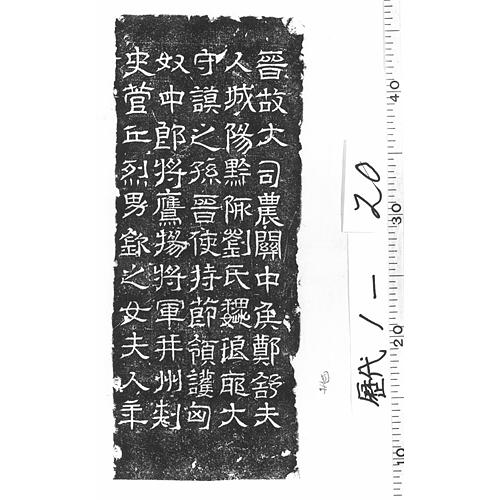 晉故大司農關中矦鄭舒夫
人城陽黔陬劉氏魏琅耶大
守謨之孫晉使持節領護匈
奴中郎將鷹揚將軍幷州刾
史菅丘烈男欽之女夫人年
歷代 1 - 20
40
30
20
10